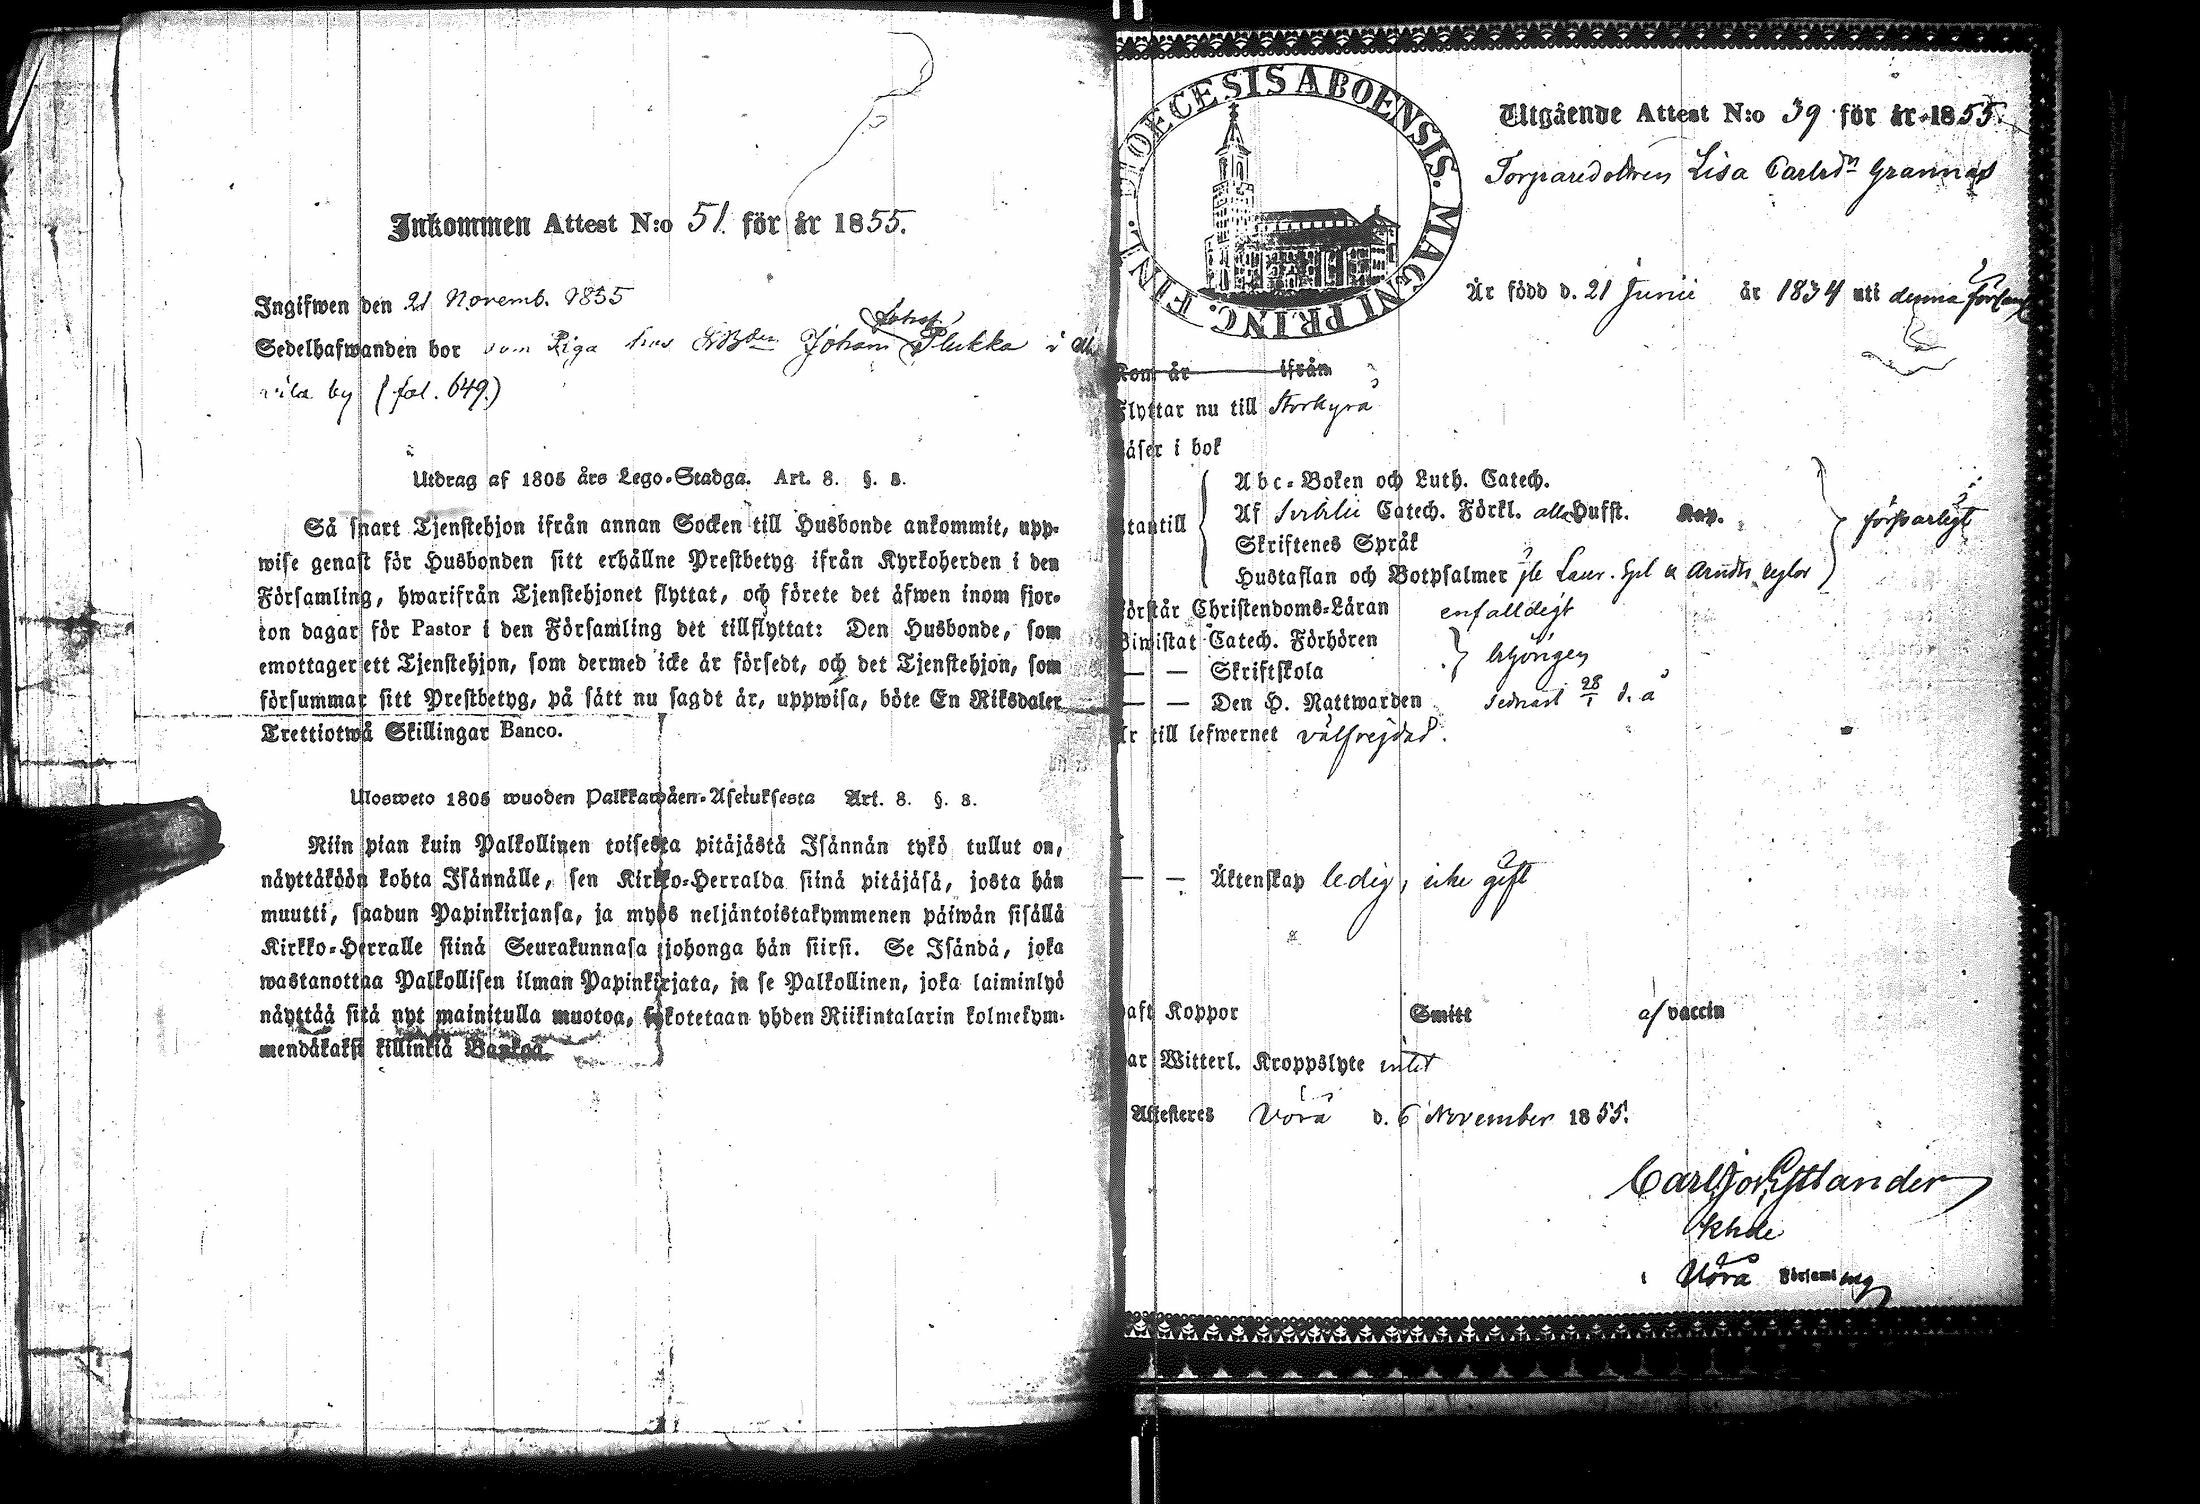 Inkommen Attest N:o 51. för år 1855.
Ingifwen den 21 Novemb. 1855
Sedelhafwanden bor som Piga hos Johan Plukka i
by (fol. 649.)
Utdrag af 1805 års Lego-Stadga. Art. 8. §. 8.
Så snart Tjenstehjon ifrån annan Socken till Husbonde ankommit, upp-
wise genast för Husbonden sitt erhållne Prestbetyg ifrån Kyrkoherden i den
Församling, hwarifrån Tjenstehjonet flyttat, och förete det äfwen inom fjor-
ton dagar för Pastor i den Församling det tillflyttat: Den Husbonde, som
emottager ett Tjenstehjon, som dermed icke är försedt, och det Tjenstehjon, som
försummar sitt Prestbetyg, på sätt nu sagdt är, uppwisa, böte En Riksdaler
Trettiotwå Skillingar Banco.
Ulosweto 1805 wuoden Palkkawäen-Asetuksesta Art. 8. §. 8.
Niin pian kuin Palkollinen toisesta pitäjästä Isännän tykö tullut on,
näyttäköön kohta Isännälle, sen Kirkko-Herralda siinä pitäjäsä, josta hän
muutti, saadun Papinkirjansa, ja myös neljäntoistakymmenen päiwän sisällä
Kirkko-Herralle siinä Seurakunnasa johonga hän siirsi. Se Isändä, joka
wastanottaa Palkollisen ilman Papinkirjata, ja se Palkollinen, joka laiminlyö
näyttää sitä nyt mainitulla muotoa, sakotetaan yhden Riikintalarin kolmekym-
mendäkaksi killinkiä Bankoa.
DIOECESIS ABOENSIS. MAGNI PRINC. FINL.
Utgående Attest N:o 39 för år 1855.
Torparedottren Lisa Carlsdr Grannas
Är född d. 21 Junii år 1834 uti denna förs
Kom år ifrån
Flyttar nu till Storkyro
Läser i bok
Abc-Boken och Luth. Catech.
utantill Af Svebilii Catech. Förkl. alla Hufst. Kap. försvarligt
Skriftenes Språk
Hustaflan och Botpsalmer Laur.
Förstår Christendoms-Läran enfalldigt
Biwistat Catech. Förhören
— — Skriftskola behörigen
— — Den H. Nattwarden sednast 28/ d. å
Är till lefwernet välfrejdad.
— — Äktenskap ledig, icke gift
haft Koppor Smitt af vaccin
Har Witterl. Kroppslyte intet
Attesteres Vörå d. 6 November 1855.
Carl Estlander
Khde
i Vörå Församling